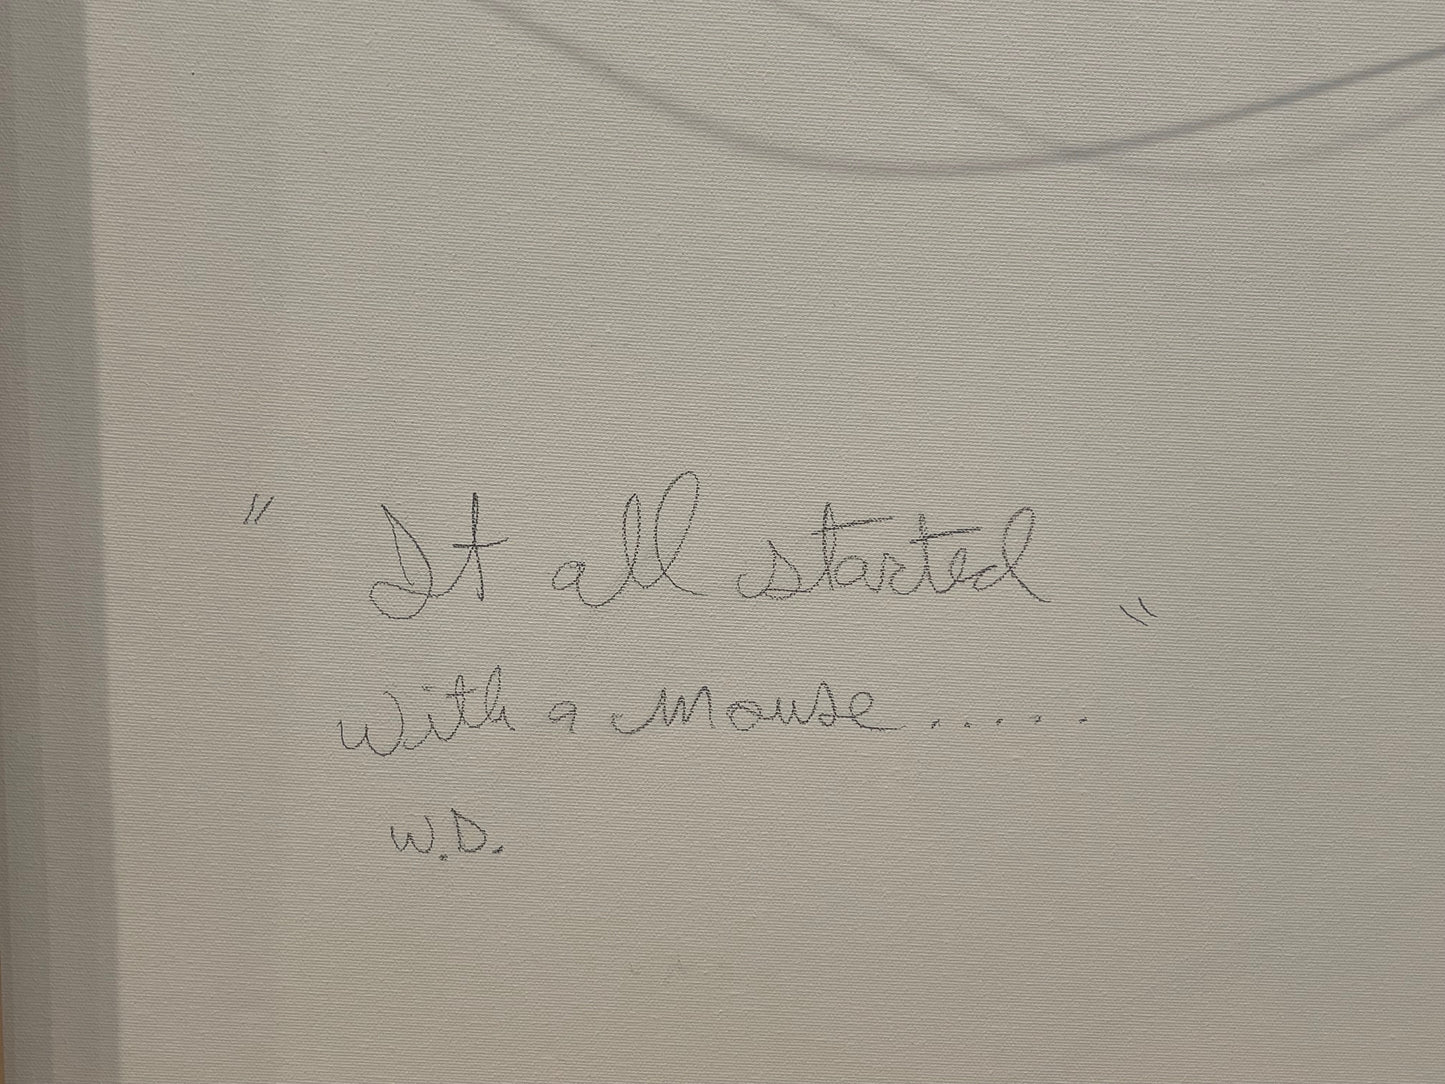 " It all started "
With a Mouse.....
W.D.